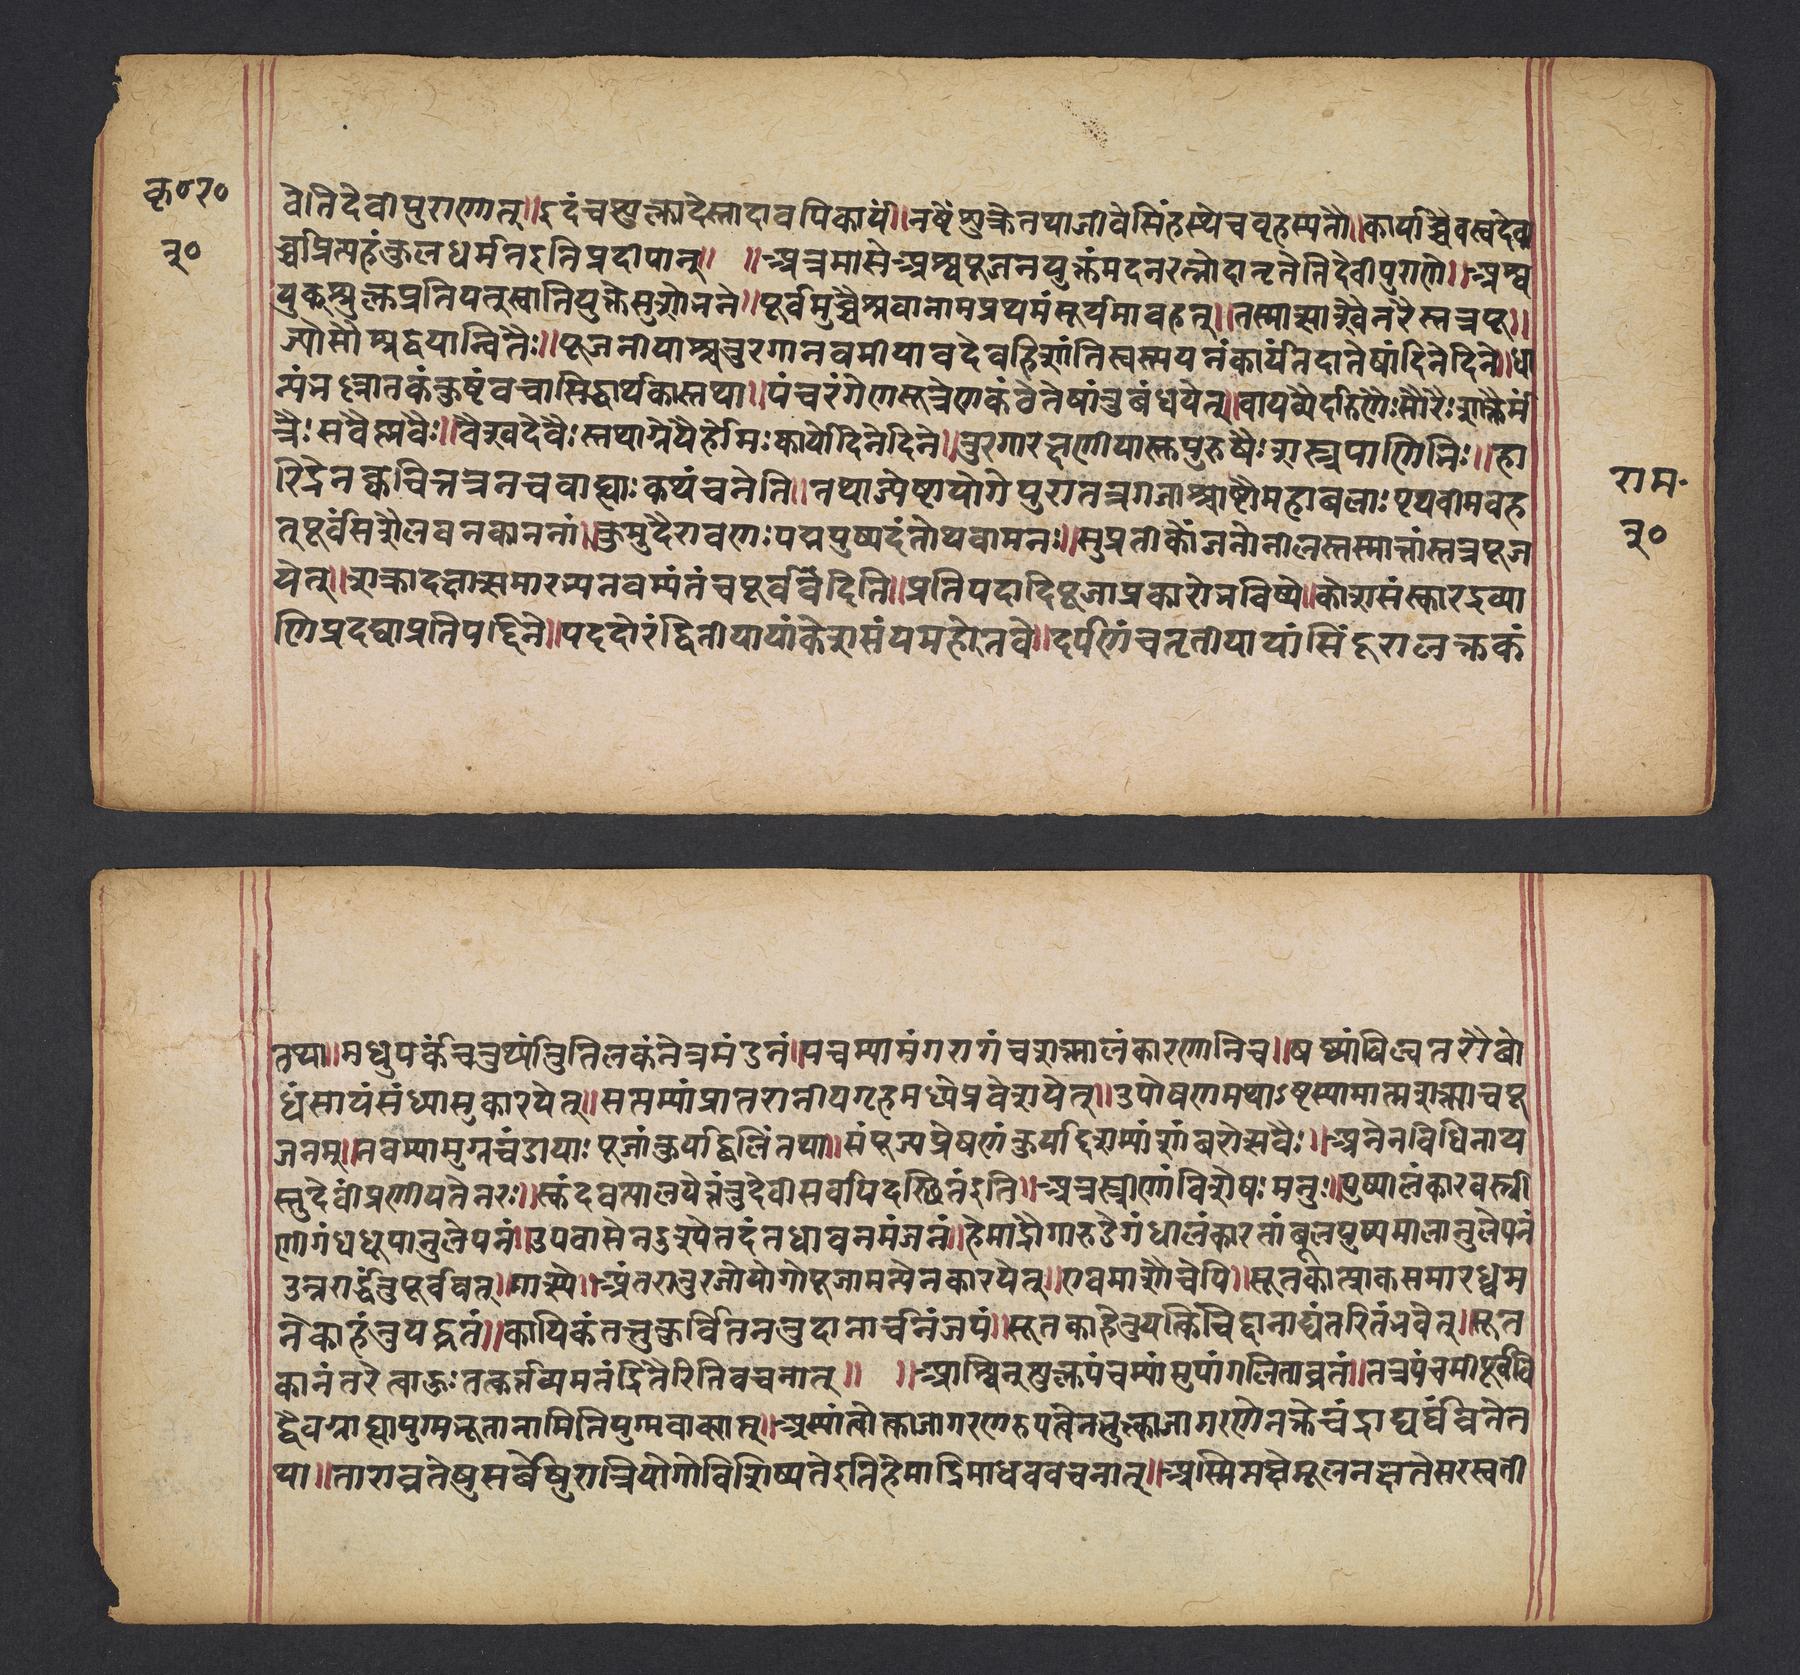 कृ०र०
२०
वेतिदेवीपुराणात्॥इदंचशुक्लादेस्त्वादावपिकार्यं॥नष्टेशुक्रेतथाजीवेसिंहस्थेचबृहस्पतौ॥कार्याश्चैवस्वदेव्य
र्चाप्रत्यहंकुलधर्मतइतिप्रदीपात्॥ ॥अत्रमासेअश्वपूजनमुक्तंमदनरत्नोदाहृतेतिदेवीपुराणे॥अश्व
युक्शुक्लप्रतिपत्स्वातियुक्तेसुशोभने॥पूर्वमुच्चैःश्रवानामप्रथमंसूर्यमावहत्॥तस्मात्साश्वैर्नरैस्तत्रपू॥
ज्योसौश्रद्धयान्वितैः॥पूजनीयाश्चतुरगानवमीयावदेवहिशांतिस्वस्त्ययनंकार्यंतदातेषांदिनेदिने॥धा
न्यंभल्लातकंकुष्टंवचासिद्धार्थकास्तथा॥पंचरंगेणसूत्रेणकंठेतेषांतुबंधयेत्॥वायव्यैर्वारुणैःसौरैःशाक्तैर्मं
त्रैःसवैष्णवैः॥वैश्वदेवैःस्तथाग्नेयैर्होमःकार्योदिनेदिने॥तुरगारक्षणीयास्तुपुरुषैःशस्त्रपाणिभिः॥हा
रिद्रेनक्वचित्तत्रनचवाह्याःकथंचनेति॥तथाज्येष्ठायोगेपुरातत्रगजाश्चाष्टौमहाबलाः पृथवीमवह
त्पूर्वंसशैलवनकाननां॥कुमुदैरावणःपद्मपुष्पदंतोथवामनः॥सुप्रतीकोंजनोनीलस्तस्मात्तांस्तत्रपूज
येत्॥शाक्रादक्षात्समारभ्यनवम्यंतंचपूर्ववदिति॥प्रतिपदादिपूजाप्रकारोभविष्ये॥केशसंस्कारद्रव्या
णिप्रदद्याप्रतिपद्दिने॥पट्टदोरंद्वितीयायांकेशसंयमहेतवे॥दर्पणंचतृतीयायांसिंदूरालक्तकं
राम॰
२०
तथा॥मधुपर्कंचतुर्थ्यांतुतिलकंनेत्रमंडनं॥पंचम्यामंगरागंचशक्त्यालंकारणानिच॥षष्ठ्यांबिल्वतरौबो
धंसायंसंध्यासुकारयेत्॥सप्तम्यांप्रातरानीयगृहमध्येप्रवेशयेत्॥उपोषणमथाऽष्टम्यामात्मशक्त्याचपू
जनम्॥नवम्यामुग्रचंडायाः पूजांकुर्याद्बलिंतथा॥संपूज्यप्रेषणंकुर्याद्दशम्यांशांबरोत्सवैः॥अनेनविधिनाय
स्तुदेवींप्रीणयतेनरः॥स्कंदवत्पालयेत्तंतुदेवीसर्वापदस्थितंइति॥अत्रस्त्रीणांविशेषःमनुः॥पुष्पालंकारवस्त्री
णीगंधधूपानुलेपनं॥उपवासेनदुष्येतदंतधावनमंजनं॥हेमाद्रौगारुडेगंधालंकारतांबूलपुष्पमालानुलेपनं
उत्तरार्द्धंतुपूर्ववत्॥मात्स्ये॥अंतरातुरजोयोगेपूजामन्येनकारयेत्॥एवमाशौचेपि॥सूतकात्प्राक्समारब्धम
नेकाहंतुयद्व्रतं॥कायिकंतत्तुकुर्वितनतुदानार्चनंजपं॥सूतकाहेतुयत्किंचिद्दानाद्यंतरितंभवेत्॥सूत
कानंतरेत्वाज्ञःतत्कर्तव्यमतंद्रितैरितिवचनात्॥ ॥आश्विनशुक्लपंचम्यांमुपांगललिताव्रतं॥तत्रपंचमीपूर्ववि
द्धैवग्राह्यायुग्मभूतानामितियुग्मवाक्यात्॥अस्यांरात्रौजागरणरुपत्वेनतुक्त्वाजागरणेनक्तेचंद्रार्घ्यर्घविनेत
था॥ताराव्रतेषुसर्वेषुरात्रियोगोविशिष्यतेइतिहेमाद्रिमाधववचनात्॥अस्मिन्पक्षेमूलनक्षत्रेसरस्वती